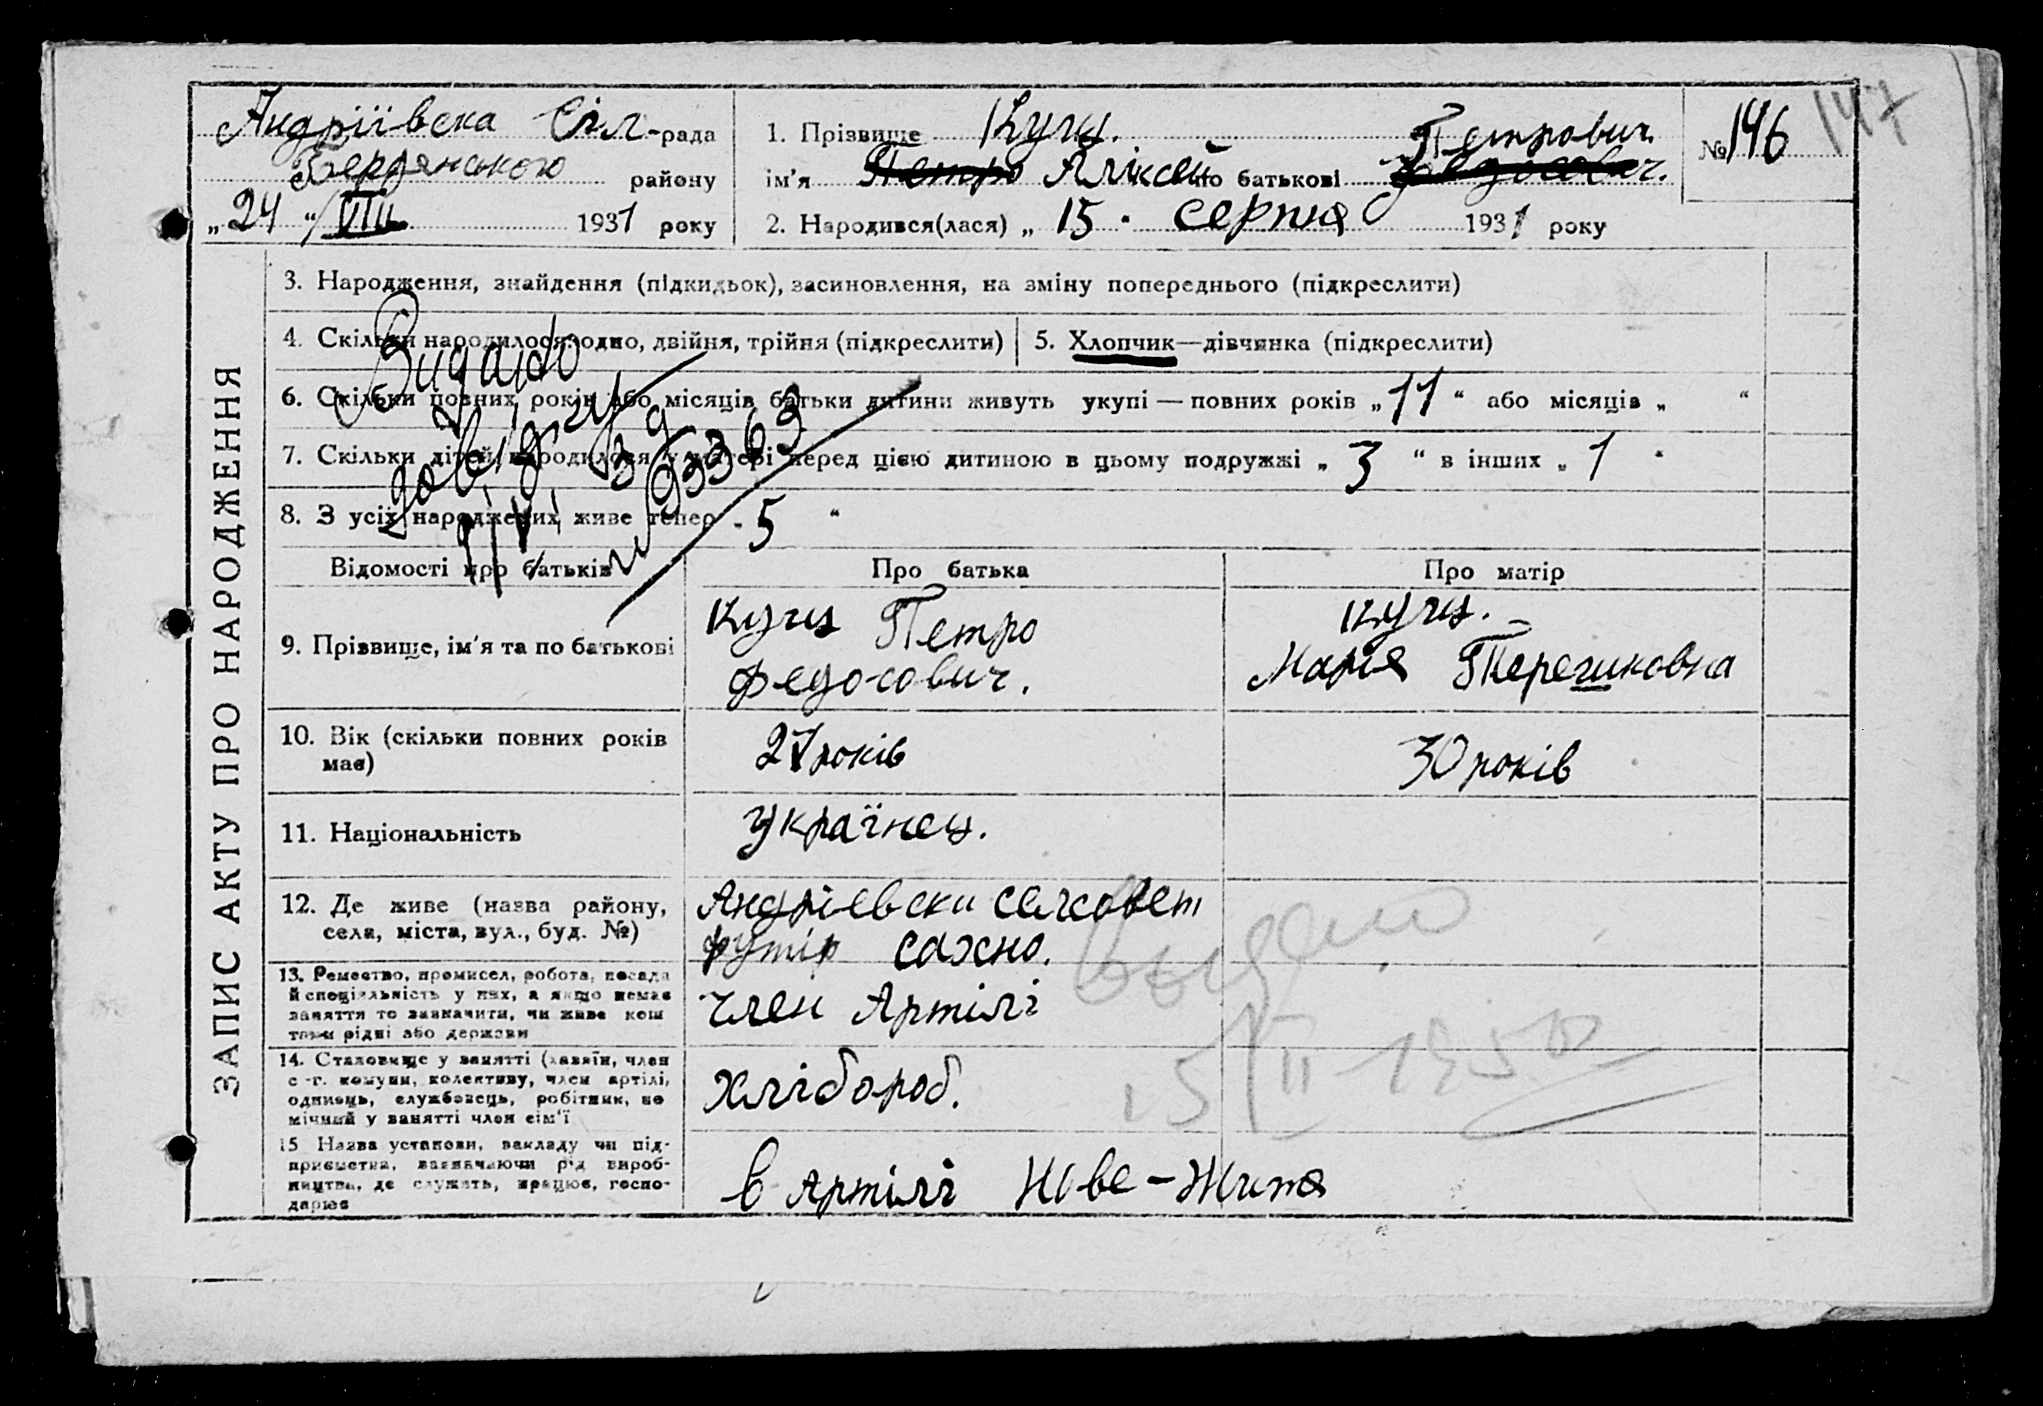 Андріївска Сіл-рада
Бердянського району
„24“ VIII 1931 року
1. Прізвище Куць.
Петрович
ім'я Петро Аліксей по батькові Федосович.
2. Народився(лася) „15. серпня 1931 року
№ 146 147
ЗАПИС АКТУ ПРО НАРОДЖЕННЯ
3. Народження, знайдення (підкидьок), засиновлення, на зміну попереднього (підкреслити)
4. Скільки народилося: одно, двійня, трійня (підкреслити)
5. Хлопчик—дівчинка (підкреслити)
6. Скільки повних років або місяців батьки дитини живуть укупі — повних років „11“ або місяців „ “
7. Скільки дітей народилося у матері перед цією дитиною в цьому подружжі „3“ в інших „1“
8. З усіх народжених живе тепер „5“
Видано
довідку
39
№ 93363
Відомості про батьків
Про батька
Про матір
9. Прізвище, ім'я та по батькові
Куць Петро
Федосович.
Куць.
Марія
10. Вік (скільки повних років
має)
27 років
30 років
11. Національність
Українец.
12. Де живе (назва району,
села, міста, вул., буд. №)
Андріевски селсовет
хутір Сахно.
13. Ремество, промисел, робота, посада
й спеціяльність у них, а якщо немає
заняття то зазначити, чи живе кош
том рідні або держави
член Артілі
14. Становище у занятті (хазяїн, член
с.-г. комуни, колективу, член артілі,
одинець, службовець, робітник, по
мічний у занятті член сім'ї
Хлібороб.
15 Назва установи, закладу чи під-
приємства, зазначаючи рід вироб-
ництва, де служить, працює, госпо-
дарює
в Артілі Нове-Житя
Выдано
15/II 1950